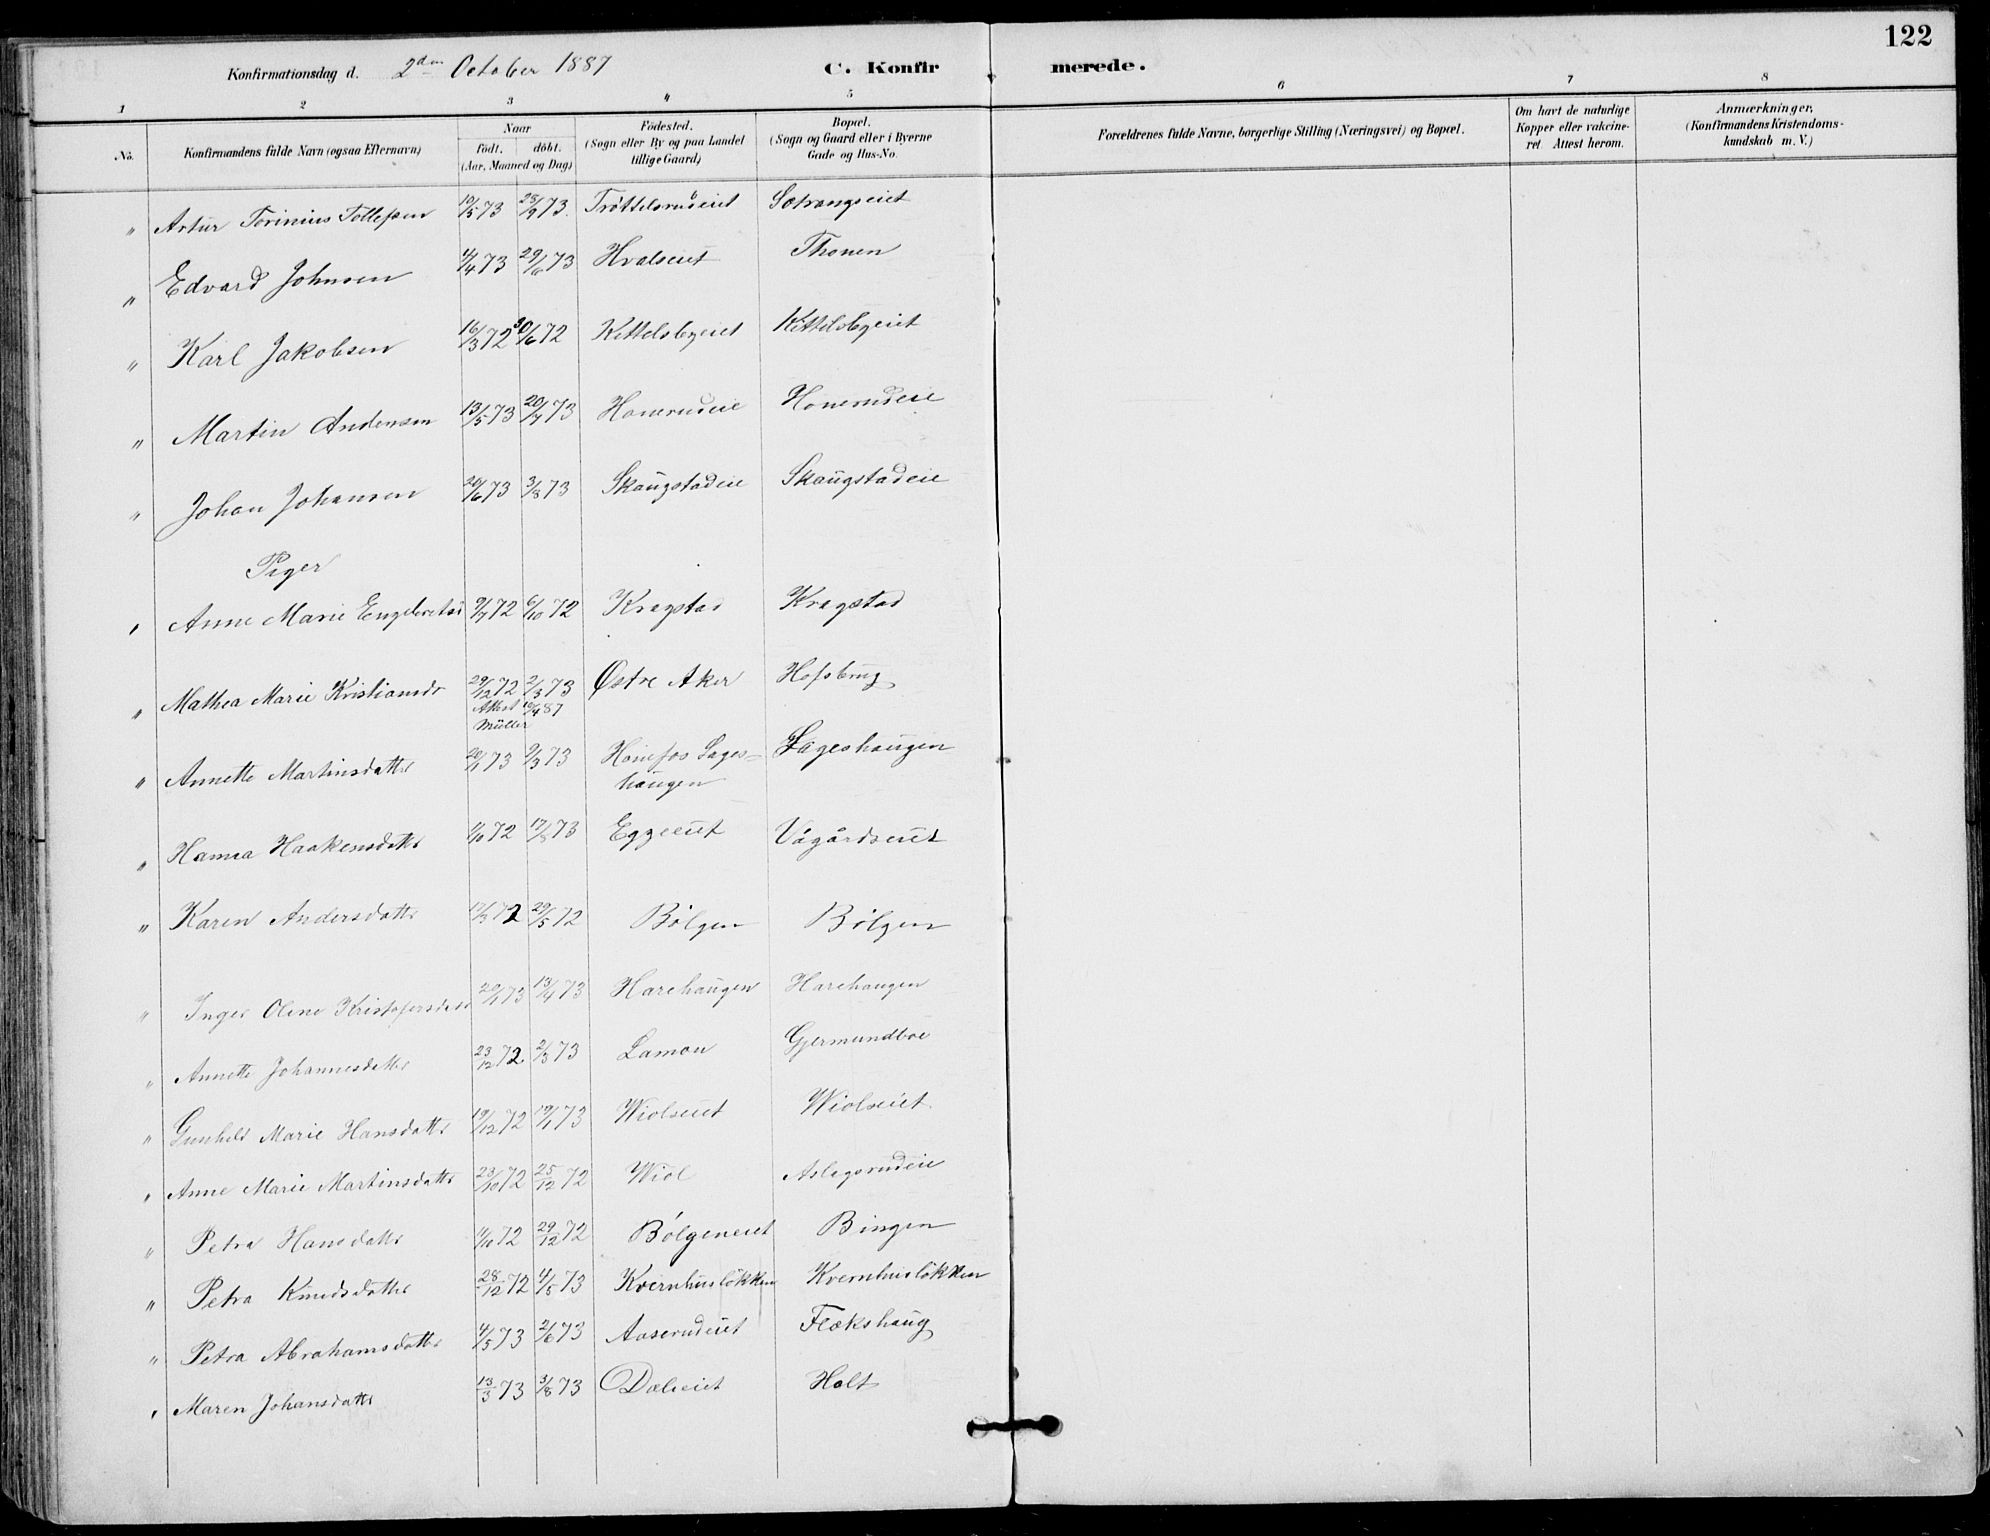 122
Konfirmationsdag d. 2den October 1887
C. Konfirmerede.
1 2 3 4 5 6 7 8
No.
Konfirmandens fulde Navn (ogsaa Efternavn)
Naar
födt. döbt.
(Aar, Maaned og Dag)
Födested.
(Sogn eller By og paa Landet
tillige Gaard)
Bopæl.
(Sogn og Gaard eller i Byerne
Gade og Hus-No.
Forældrenes fulde Navne, borgerlige Stilling (Næringsvei) og Bopæl.
Om havt de naturlige
Kopper eller vakcine-
ret. Attest herom.
Anmærkninger,
(Konfirmandens Kristendoms-
kundskab m. V.)
" Artur Torinius Tollefsen 10/5 73 28/9 73. Tröttelsrudeiet Sætrangseiet
" Edvard Johnsen 4/4 73 29/6 73 Hvalseiet Thonen
" Karl Jakobsen 16/3 72 30/6 72 Kittelsbyeiet Kittelsbyeiet
" Martin Andersen 13/5 73 20/7 73 Honerudeie Honerudeie
" Johan Johansen 20/6 73 3/8 73 Skaugstadeie Skaugstadeie
Piger
" Anne Marie Engebretsd 9/7 72 6/10 72 Kragstad Kragstad
" Mathea Marie Kristiansdr 29/12 72 2/3 73 Østre Aker Hofsbrug
Attest 10/4 87
Müller
" Annette Martinsdatter 20/1 73 9/3 73 Hönefos Sages= Sageshaugen
haugen
" Hanna Haakensdatter 4/10 72 17/8 73 Eggeeiet Vågårdseiet
" Karen Andersdatter 17/3 72 29/5 72 Bölgen Bölgen
" Inger Oline Kristofersdatter 20/1 73 13/4 73 Harehaugen Harehaugen
" Annette Johannesdatter 23/12 72 2/3 73 Lamon Gjermundboe
" Gunhild Marie Hansdatter 19/12 72 19/1 73 Wiolseiet Wiolseiet
" Anne Marie Martinsdatter 23/10 72 25/12 72 Wiol Aslagsrudeie
" Petra Hansdatter 11/10 72 29/12 72 Bölgeneiet Bingen
" Petra Knudsdatter 28/12 72 4/5 73 Kvernhuslökken Kvernhuslökken
" Petra Abrahamsdatter 4/5 73 2/6 73 Aaserudeiet Flækshaug
" Maren Johansdatter 13/3 73 3/8 73 Dæleiet Holt